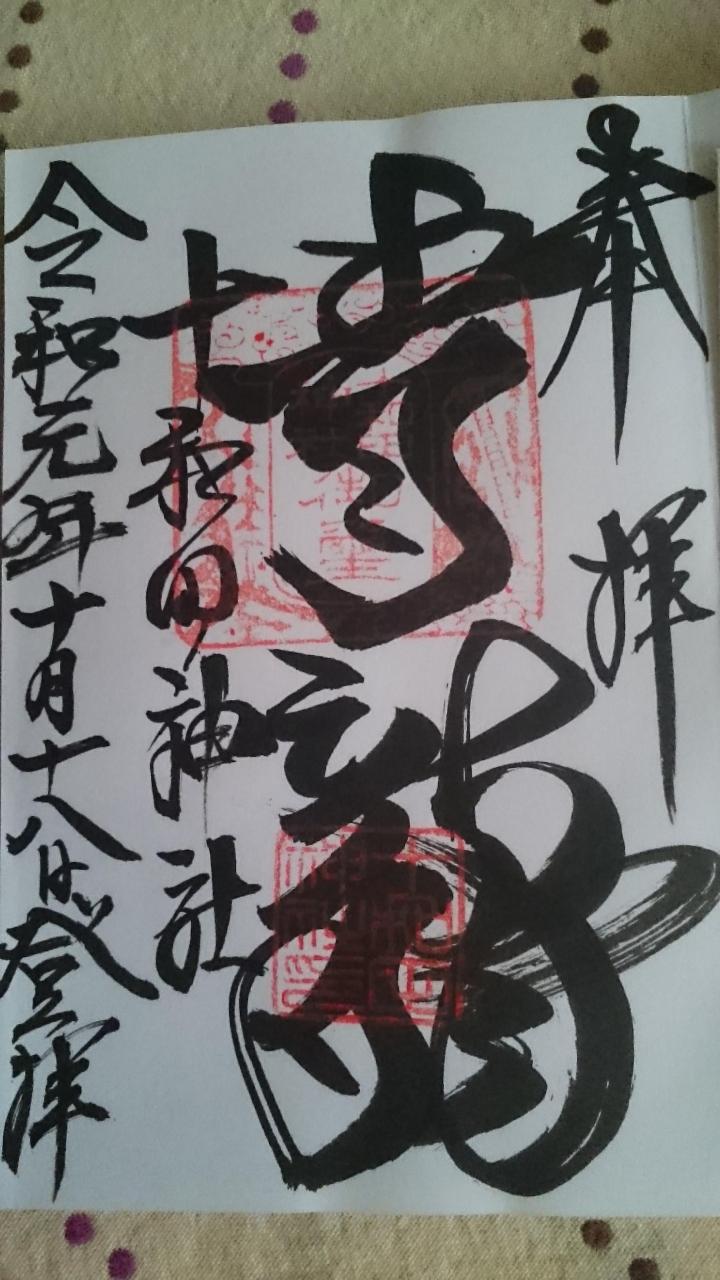 奉拝
青龍
十和田神社
令和元年十月十八日登拝